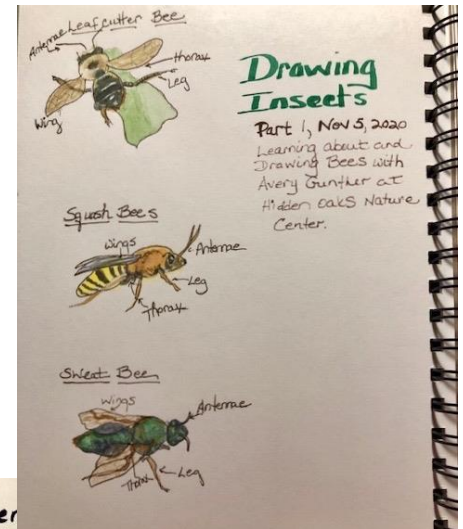 Leafcutter Bee
Antennae
thorax
Leg
Wing
Drawing
Insects
Part 1, Nov 5, 2020
Learning about and
Drawing Bees with
Avery Gunther at
Hidden Oaks Nature
Center.
Squash Bees
wings
Antennae
Leg
Thorax
Sweat Bee
wings
Antennae
Leg
er